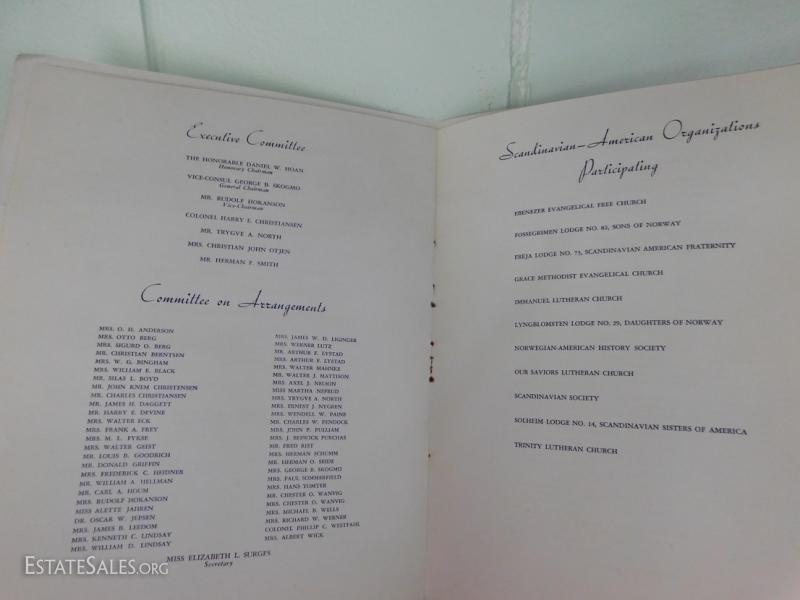 Executive Committee
THE HONORABLE DANIEL W. HOAN
Honorary Chairman
VICE-CONSUL GEORGE B. SKOGMO
General Chairman
MR. RUDOLF HOKANSON
Vice-Chairman
COLONEL HARRY E. CHRISTIANSEN
MR. TRYGVE A. NORTH
MRS. CHRISTIAN JOHN OTJEN
MR. HERMAN F. SMITH
Committee on Arrangements
MRS. O. H. ANDERSON
MRS. OTTO BERG
MRS. SIGURD O. BERG
MR. CHRISTIAN BERNTSEN
MRS. W. G. BINGHAM
MRS. WILLIAM E. BLACK
MR. SILAS L. BOYD
MR. JOHN KNEM CHRISTENSEN
MR. CHARLES CHRISTIANSEN
MR. JAMES H. DAGGETT
MR. HARRY E. DEVINE
MRS. WALTER ECK
MRS. FRANK A. FREY
MRS. M. L. FYKSE
MRS. WALTER GEIST
MR. LOUIS B. GOODRICH
MR. DONALD GRIFFIN
MRS. FREDERICK C. HEIDNER
MR. WILLIAM A. HELLMAN
MR. CARL A. HOUM
MRS. RUDOLF HOKANSON
MISS ALETTE JAHREN
DR. OSCAR W. JEPSEN
MRS. JAMES B. LEEDOM
MRS. KENNETH C. LINDSAY
MRS. WILLIAM D. LINDSAY
MRS. JAMES W. D. LIGINGER
MRS. WERNER LUTZ
MR. ARTHUR F. LYSTAD
MRS. ARTHUR F. LYSTAD
MR. WALTER MAHNKE
MR. WALTER J. MATTISON
MRS. AXEL J. NELSON
MISS MARTHA NEFRUD
MRS. TRYGVE A. NORTH
MRS. ERNEST J. NYGREN
MRS. WENDELL W. PAINE
MR. CHARLES W. PENDOCK
MRS. JOHN F. PULLIAM
MRS. J. BESWICK PURCHAS
MR. FRED RIST
MRS. HERMAN SCHUMM
MR. HERMAN O. SEIDE
MRS. GEORGE B. SKOGMO
MR. PAUL SOMMERFIELD
MRS. HANS TOMTER
MR. CHESTER O. WANVIG
MRS. CHESTER O. WANVIG
MRS. MICHAEL B. WELLS
MRS. RICHARD W. WERNER
COLONEL PHILLIP C. WESTFAHL
MRS. ALBERT WICK
MISS ELIZABETH L. SURGES
Secretary
Scandinavian-American Organizations
Participating
EBENEZER EVANGELICAL FREE CHURCH
FOSSEGRIMEN LODGE NO. 82, SONS OF NORWAY
FREJA LODGE NO. 73, SCANDINAVIAN AMERICAN FRATERNITY
GRACE METHODIST EVANGELICAL CHURCH
IMMANUEL LUTHERAN CHURCH
LYNGBLOMSTEN LODGE NO. 29, DAUGHTERS OF NORWAY
NORWEGIAN-AMERICAN HISTORY SOCIETY
OUR SAVIORS LUTHERAN CHURCH
SCANDINAVIAN SOCIETY
SOLHEIM LODGE NO. 14, SCANDINAVIAN SISTERS OF AMERICA
TRINITY LUTHERAN CHURCH
ESTATESALES.ORG